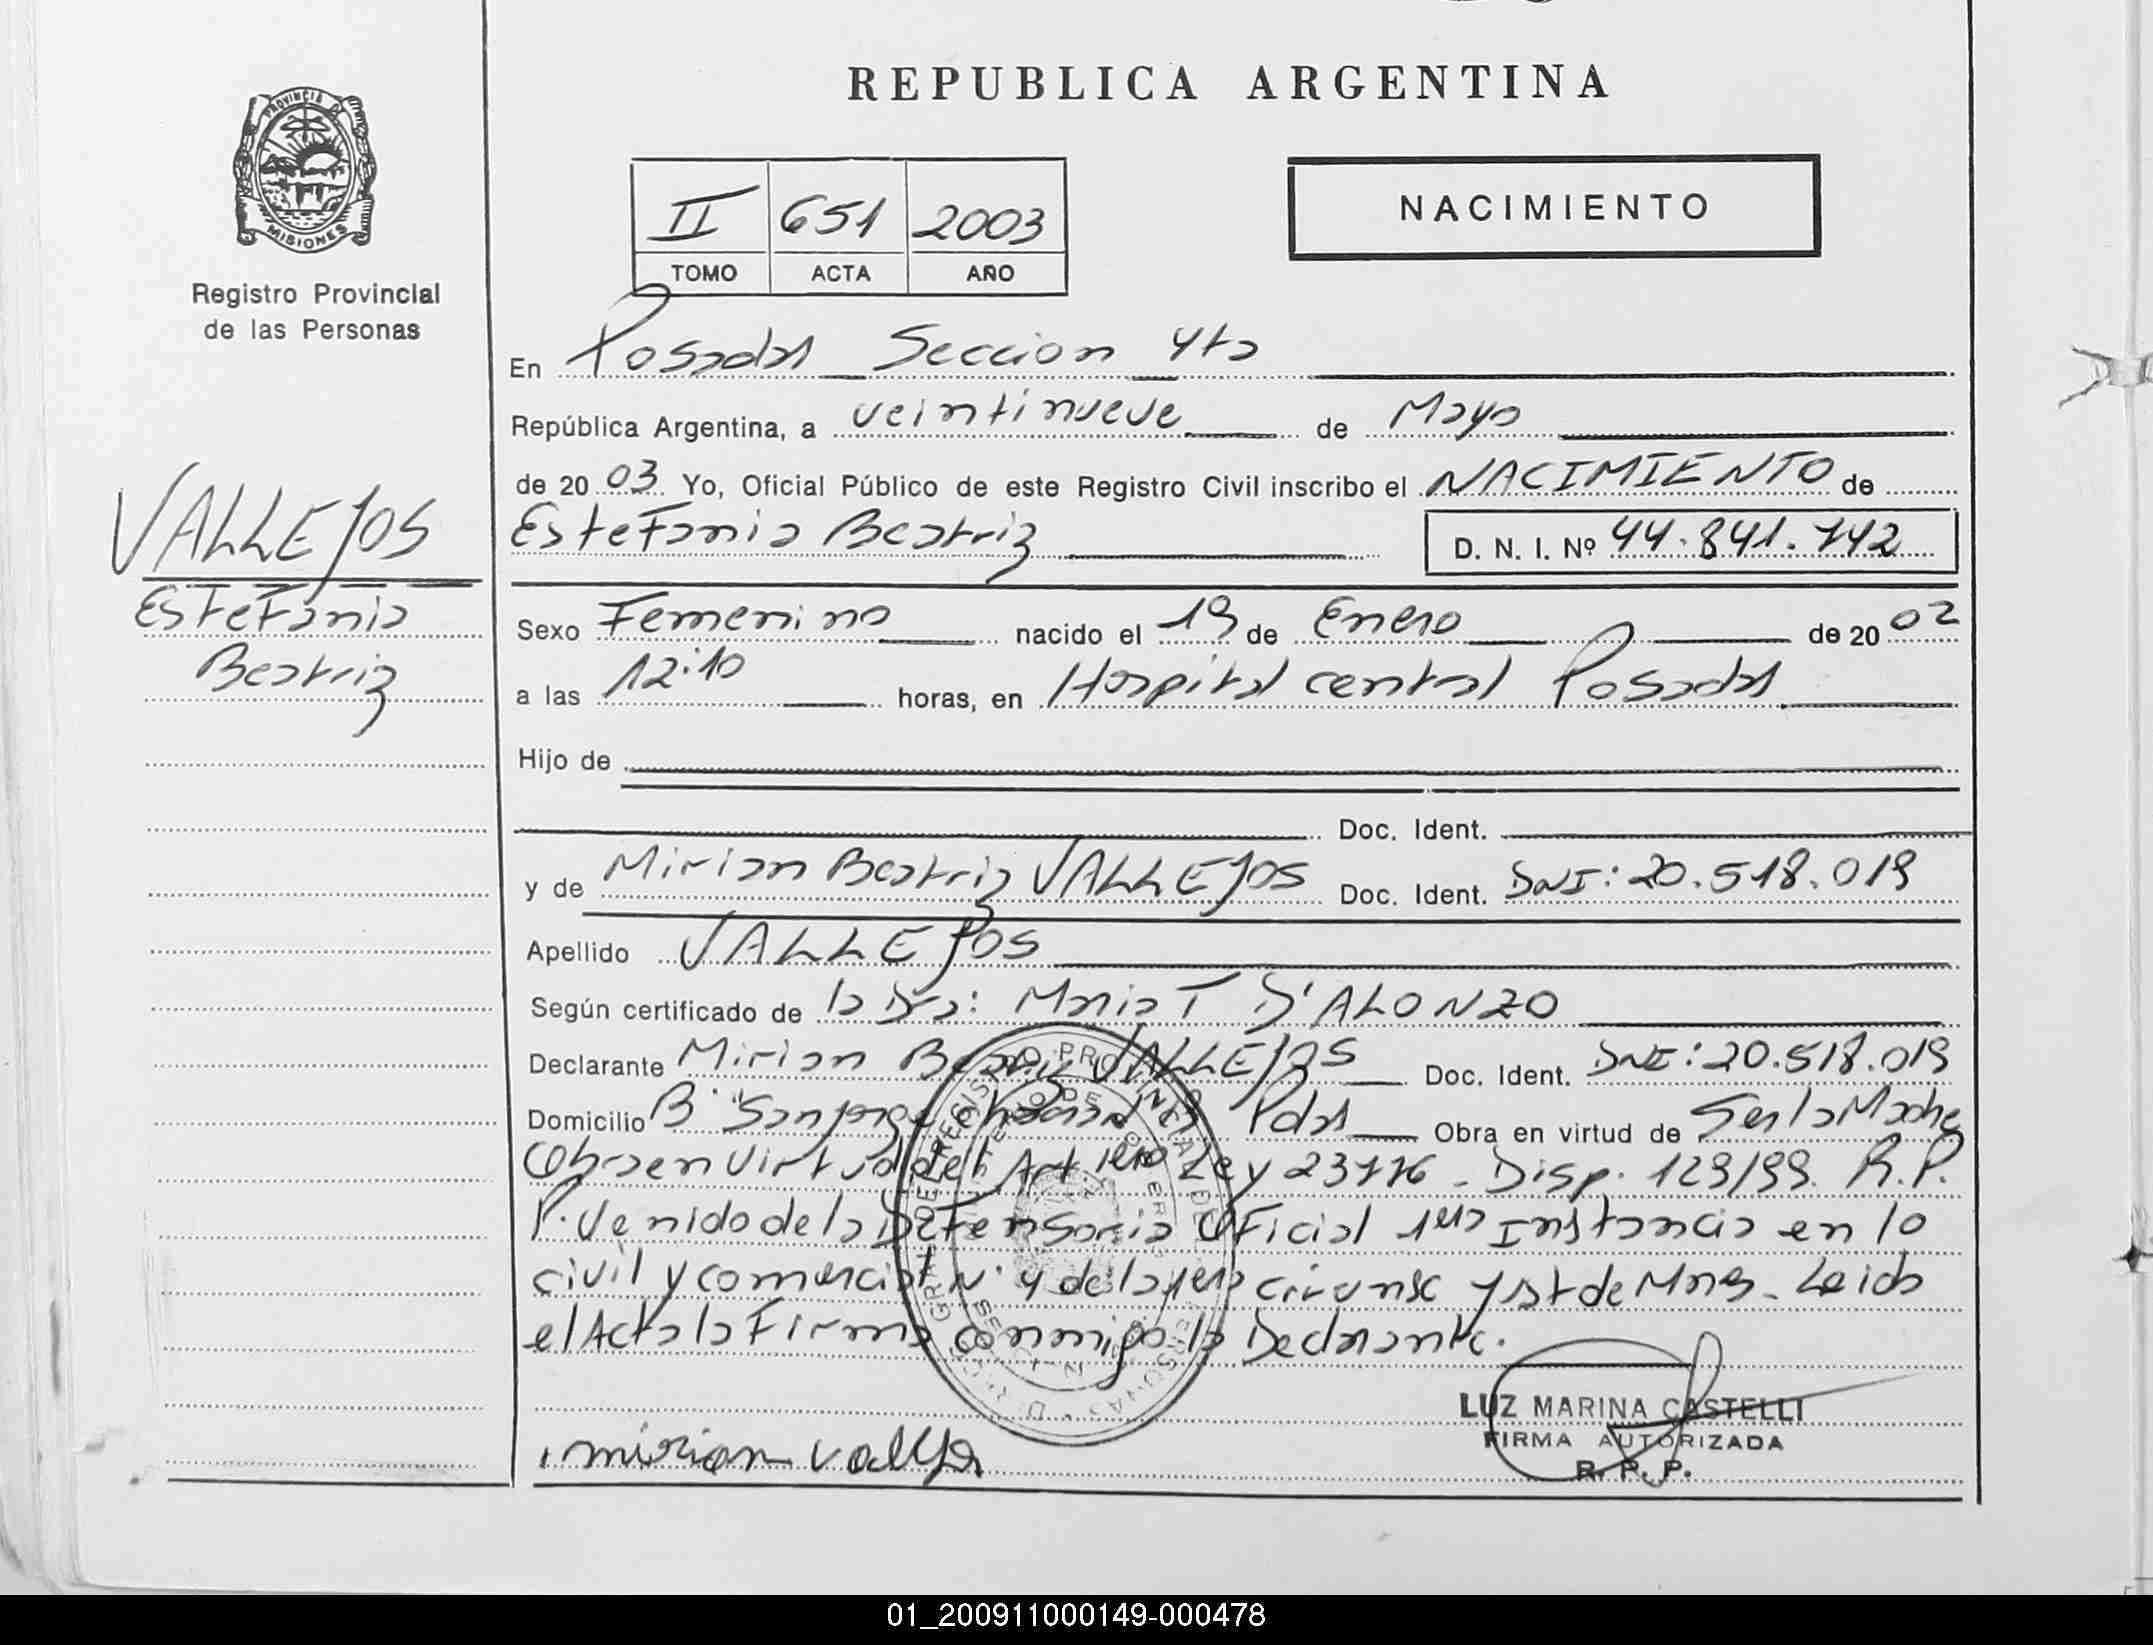 REPUBLICA ARGENTINA
PROVINCIA DE
MISIONES
Registro Provincial
de las Personas
II 651 2003
TOMO ACTA AÑO
NACIMIENTO
En Posadas Seccion 4ta
República Argentina, a veintinueve de Mayo
de 20 03 Yo, Oficial Público de este Registro Civil inscribo el NACIMIENTO de
Estefania Beatriz D. N. I. Nº 44.841.742
VALLEJOS
Estefania
Beatriz
Sexo Femenino nacido el 19 de Enero de 20 02
a las 12:10 horas, en Hospital central Posadas
Hijo de
Doc. Ident.
y de Mirian Beatriz VALLEJOS Doc. Ident. DNI: 20.518.019
Apellido VALLEJOS
Según certificado de la Dra: Maria T D'ALONZO
Declarante Mirian Beatriz VALLEJOS Doc. Ident. DNI: 20.518.019
Domicilio B° "San Jorge Pdas Obra en virtud de Ser la Madre
Obra en virtud del Art 1ero Ley 23776 - Disp. 129/99. R.P.
P. Venido de la Defensoria Oficial 1era Instancia en lo
civil y comercial N° 4 de la 1era circunsc Jst de Mnes. Leida
el Acta la Firma conmigo la Declarante.
mirian vallejos
LUZ MARINA CASTELLI
FIRMA AUTORIZADA
R. P. P.
01_200911000149-000478